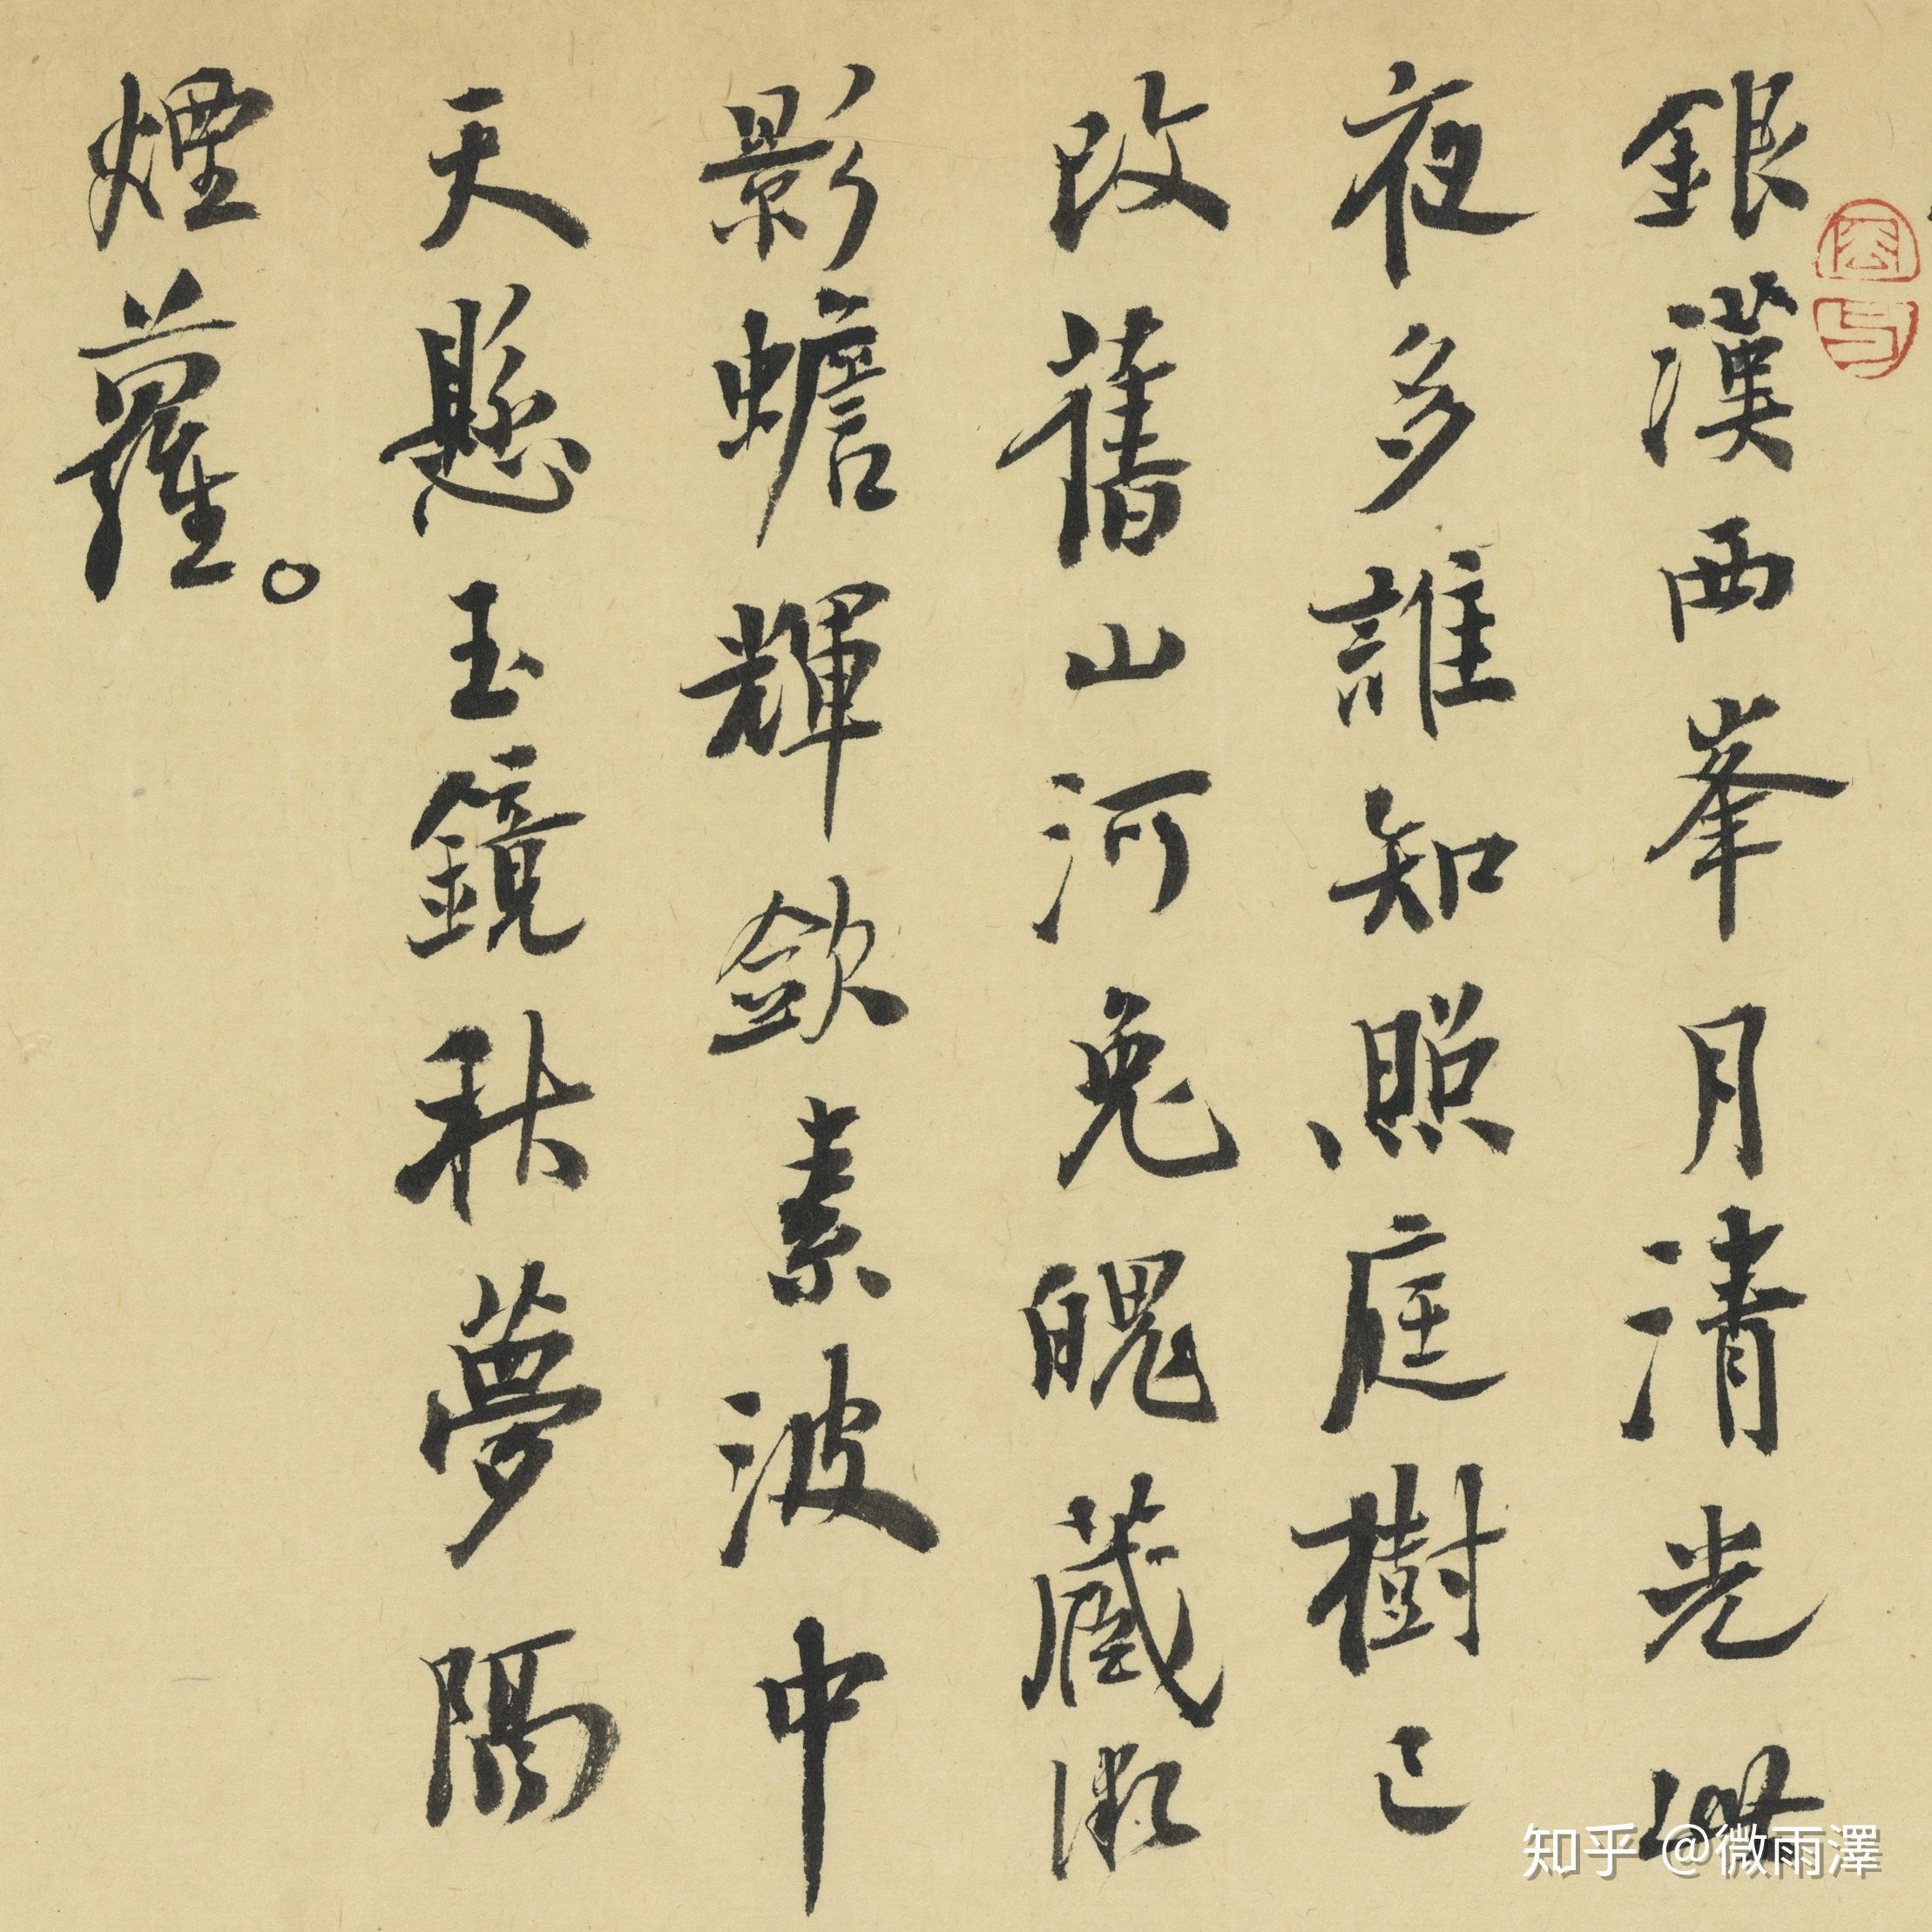 銀漢西峯月清光此
夜多誰知照庭樹已
改舊山河兔魄藏微
影蟾輝歛素波中
天懸玉鏡秋夢隔
煙蘿。
知乎 @微雨澤